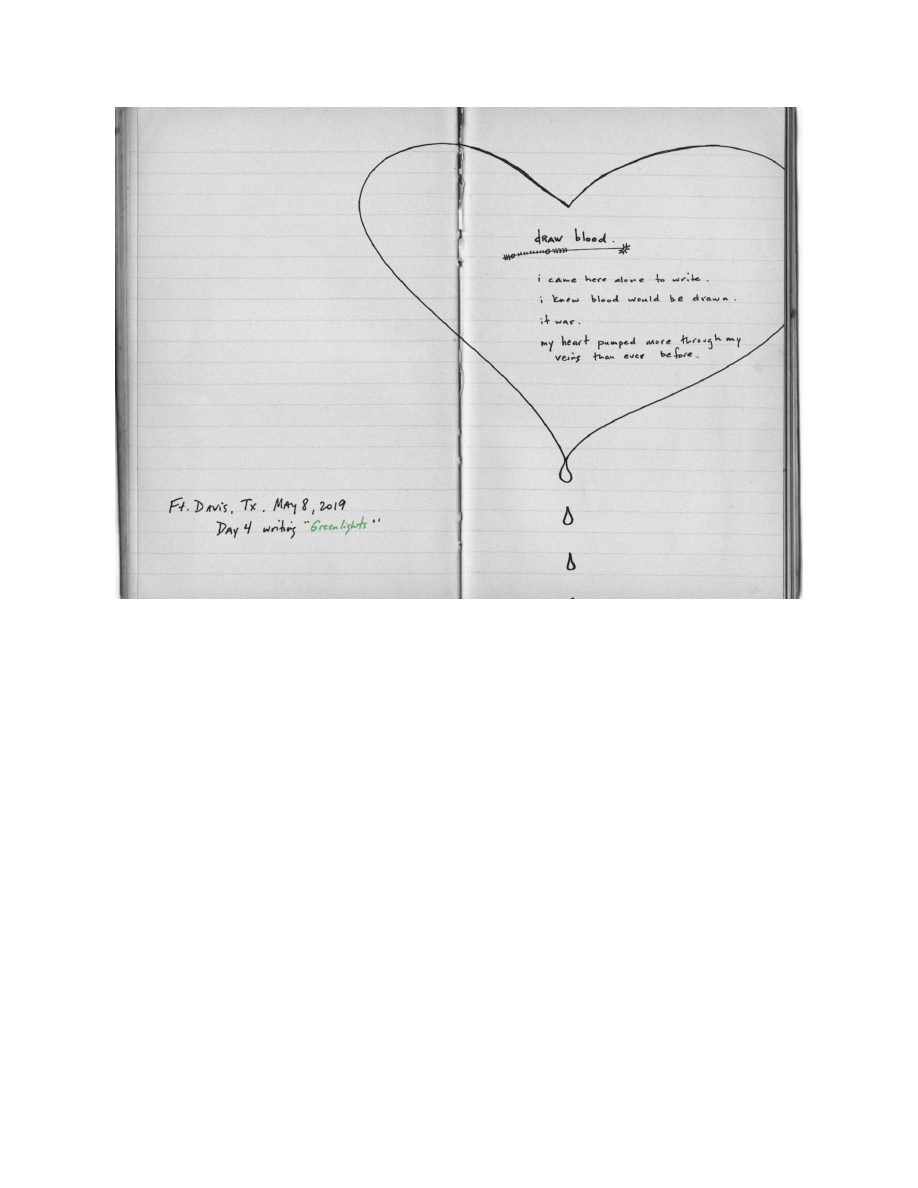 Ft. Davis, Tx. May 8, 2019
Day 4 writing "Greenlights"
draw blood.
i came here alone to write.
i knew blood would be drawn.
it was.
my heart pumped more through my
veins than ever before.